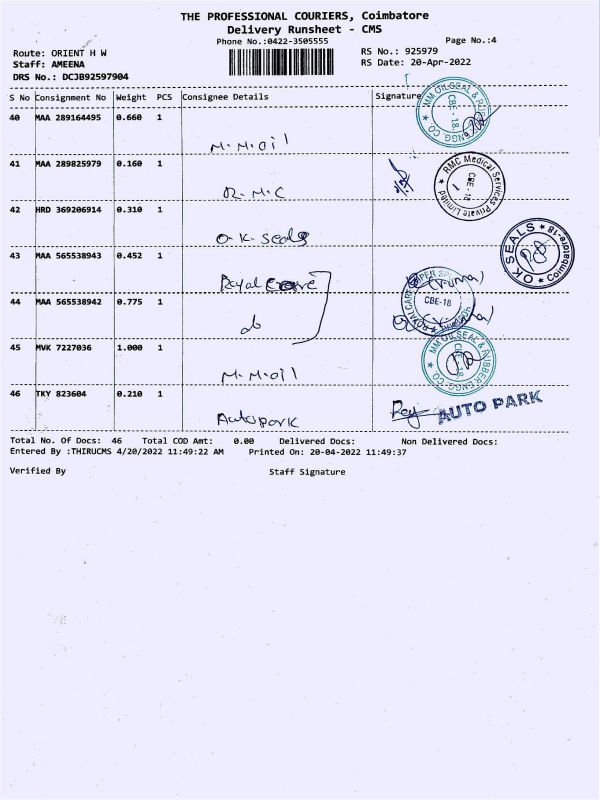 THE PROFESSIONAL COURIERS, Coimbatore
Delivery Runsheet - CMS
Phone No.:0422-3505555
Page No.:4
Route: ORIENT H W
RS No.: 925979
Staff: AMEENA
RS Date: 20-Apr-2022
DRS No.: DC3B92597904
S No Consignment No Weight PCS Consignee Details Signature
40 MAA 289164495 0.660 1
M.M.oil
MM OILSEAL & RUBBER ENGG. CO. CBE-18.
41 MAA 289825979 0.160 1
R.M.C
RMC Medical Services Private Limited CBE-18
42 HRD 369206914 0.310 1
O.K.seals
O K SEALS Coimbatore-18
43 MAA 565538943 0.452 1
Royal Care
44 MAA 565538942 0.775 1
do
ROYAL CARE SUPER CBE-18
45 MVK 7227036 1.000 1
M.M.oil
MM OILSEAL & RUBBER ENGG. CO. CBE-18
46 TKY 823604 0.210 1
Autopark
AUTO PARK
Total No. Of Docs: 46 Total COD Amt: 0.00 Delivered Docs: Non Delivered Docs:
Entered By :THIRUCMS 4/20/2022 11:49:22 AM Printed On: 20-04-2022 11:49:37
Verified By Staff Signature